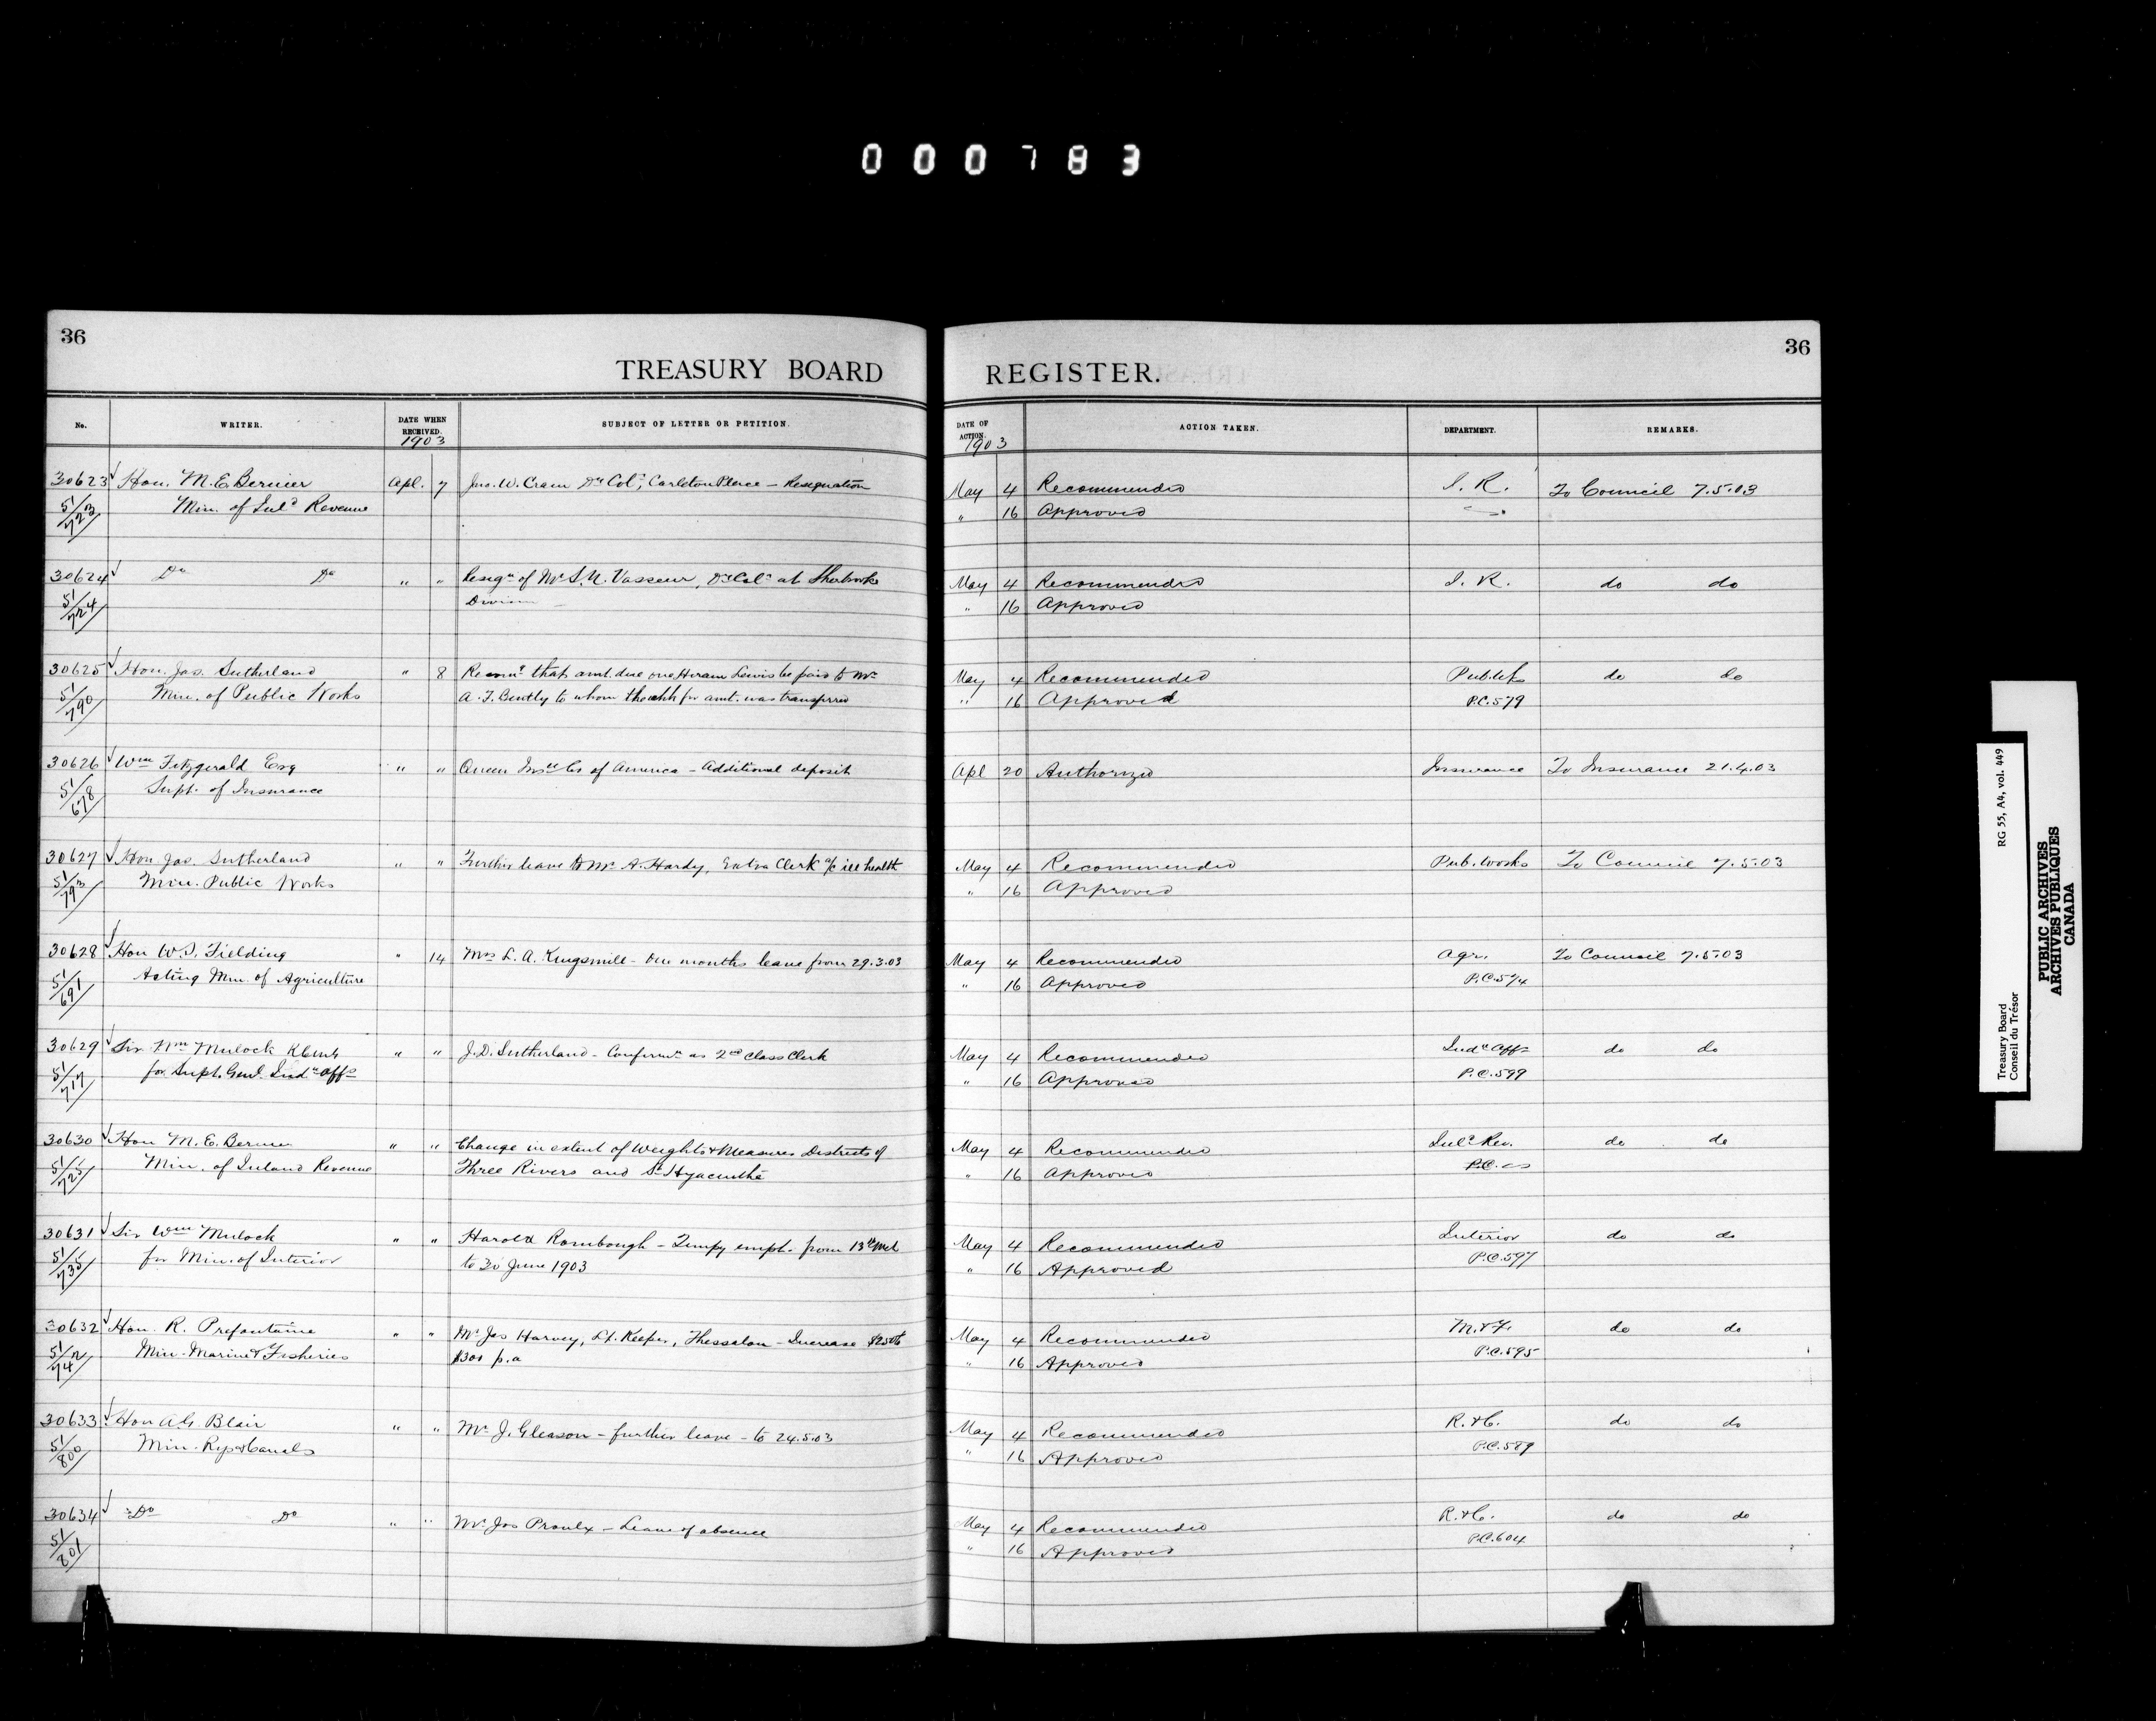 000783
36
TREASURY BOARD
REGISTER.
36
No.
WRITER.
DATE WHEN RECEIVED.
1903
SUBJECT OF LETTER OR PETITION.
DATE OF ACTION.
1903
ACTION TAKEN.
DEPARTMENT.
REMARKS.
30623 Hon. M.E. Bernier Apl. 7 Jno. W. Cram Dy Colr, Carleton Place – Resignation May 4 Recommended I. R. To Council 7.5.03
51/723 Min. of Inld Revenue " 16 Approved
30624 Do Do " " Resign of Mr S.N. Vasseur, Dy Colr at Sherbrooke May 4 Recommended I. R. do do
51/724 Division " 16 Approved
30625 Hon. Jas. Sutherland " 8 that amt. due one Hiram Lewis be paid to Mr May 4 Recommended do do
51/790 Min. of Public Works A. F. Bently to whom the for amt. was transferred " 16 Approved P.C. 579
30626 Wm Fitzgerald Esq " " Queen Insce Co of America – Additional deposit Apl 20 Authorized Insurance To Insurance 21.4.03
51/678 Supt. of Insurance
30627 Hon Jas. Sutherland " " Further leave to Mr A. Hardy, Extra Clerk a/c ill health May 4 Recommended Pub. Works To Council 7.5.03
51/793 Min. Public Works " 16 Approved
30628 Hon W.S. Fielding " 14 Mrs L. A. Kingsmill – one months leave from 29.3.03 May 4 Recommended Agr. To Council 7.5.03
51/691 Acting Min. of Agriculture " 16 Approved P.C. 574
30629 Sir Wm Mulock " " J.D. Sutherland – Confirmn as 2nd Class Clerk May 4 Recommended Indn Affs do do
51/717 for Supt. Genl. Indn Affs " 16 Approved P.C. 599
30630 Hon M. E. Bernier " " Change in extent of Weights & Measures Districts of May 4 Recommended Inld Rev. do do
51/725 Min. of Inland Revenue Three Rivers and St Hyacinthe " 16 Approved P.C.
30631 Sir Wm Mulock " " Harold Rombough – Tempy empt. from 13th inst May 4 Recommended Interior do do
51/735 for Min. of Interior to 30 June 1903 " 16 Approved P.C. 597
30632 Hon. R. Prefontaine " " Mr Jas Harvey, Lt. Keeper, Thessalon – Increase $250 to May 4 Recommended M. & F. do do
51/74 Min. Marine & Fisheries $300 p.a " 16 Approved P.C. 595
30633 Hon A.G. Blair " " Mr J. Gleason – further leave – to 24.5.03 May 4 Recommended R. & C. do do
51/80 Min. Rys & Canals " 16 Approved P.C. 589
30634 Do Do " " Mr Jos Proulx – Leave of absence May 4 Recommended R. & C. do do
51/801 " 16 Approved P.C. 604
Treasury Board RG 55, A4, vol. 449
Conseil du Trésor
PUBLIC ARCHIVES
ARCHIVES PUBLIQUES
CANADA